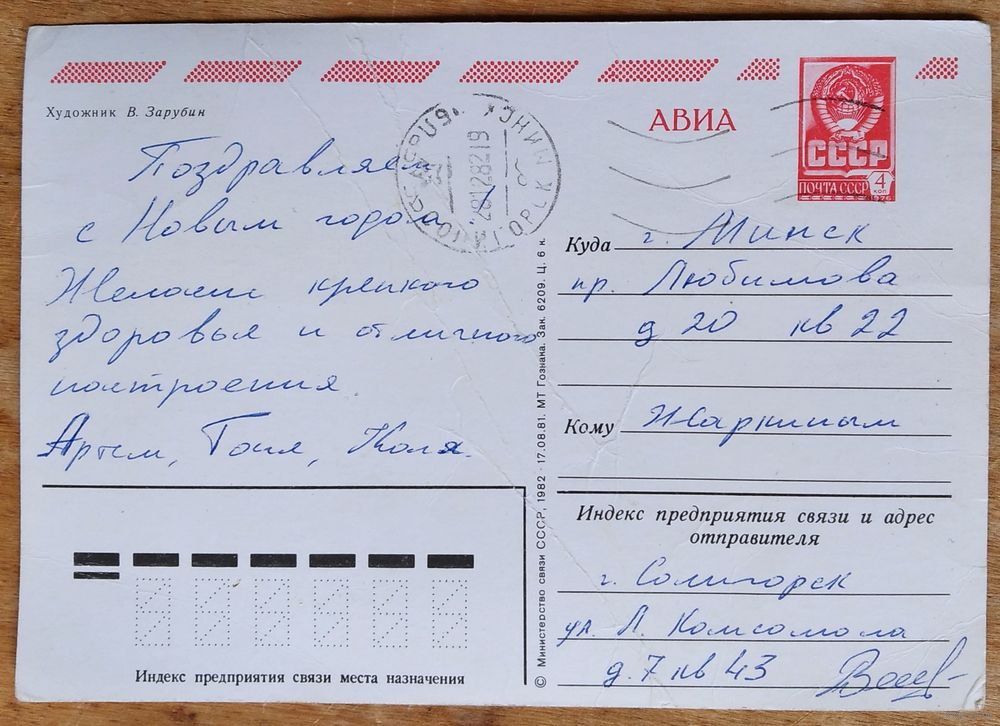 Художник В. Зарубин
АВИА
СССР
ПОЧТА СССР 4 КОП
28128219
Поздравляем
с Новым годом!
Желаем крепкого
здоровья и отличного
настроения
Артем, Таня, Коля.
Индекс предприятия связи места назначения
© Министерство связи СССР, 1982 · 17.08.81. МТ Гознака. Зак. 6209. Ц. 6 к.
Куда г. Минск
пр. Любимова
д 20 кв 22
Кому Жаркиным
Индекс предприятия связи и адрес
отправителя
г. Солигорск
ул. Л. Комсомола
д. 7 кв 43